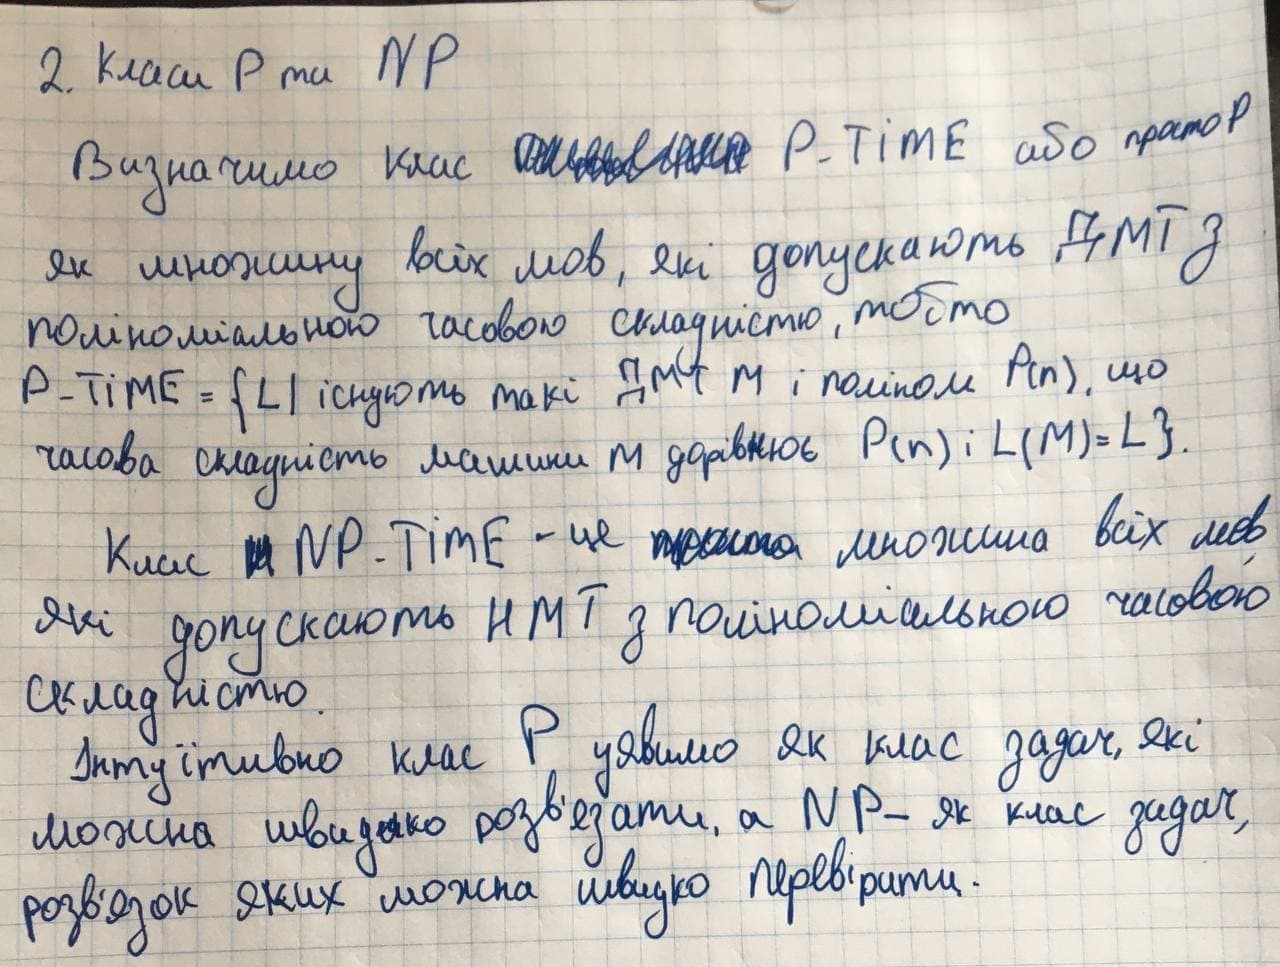 2. Класи P та NP
Визначимо клас P-TiME або просто P
як множину всіх мов, які допускають ДМТ з
поліноміальною часовою складністю, тобто
P-TiME = {L| існують такі ДМТ M і поліном P(n), що
часова складність машини M дорівнює P(n) і L(M)=L}.
Клас NP-TiME - це множина всіх мов,
які допускають НМТ з поліноміальною часовою
складністю.
Інтуїтивно клас P уявимо як клас задач, які
можна швидко розв'язати, а NP- як клас задач,
розв'язок яких можна швидко перевірити.